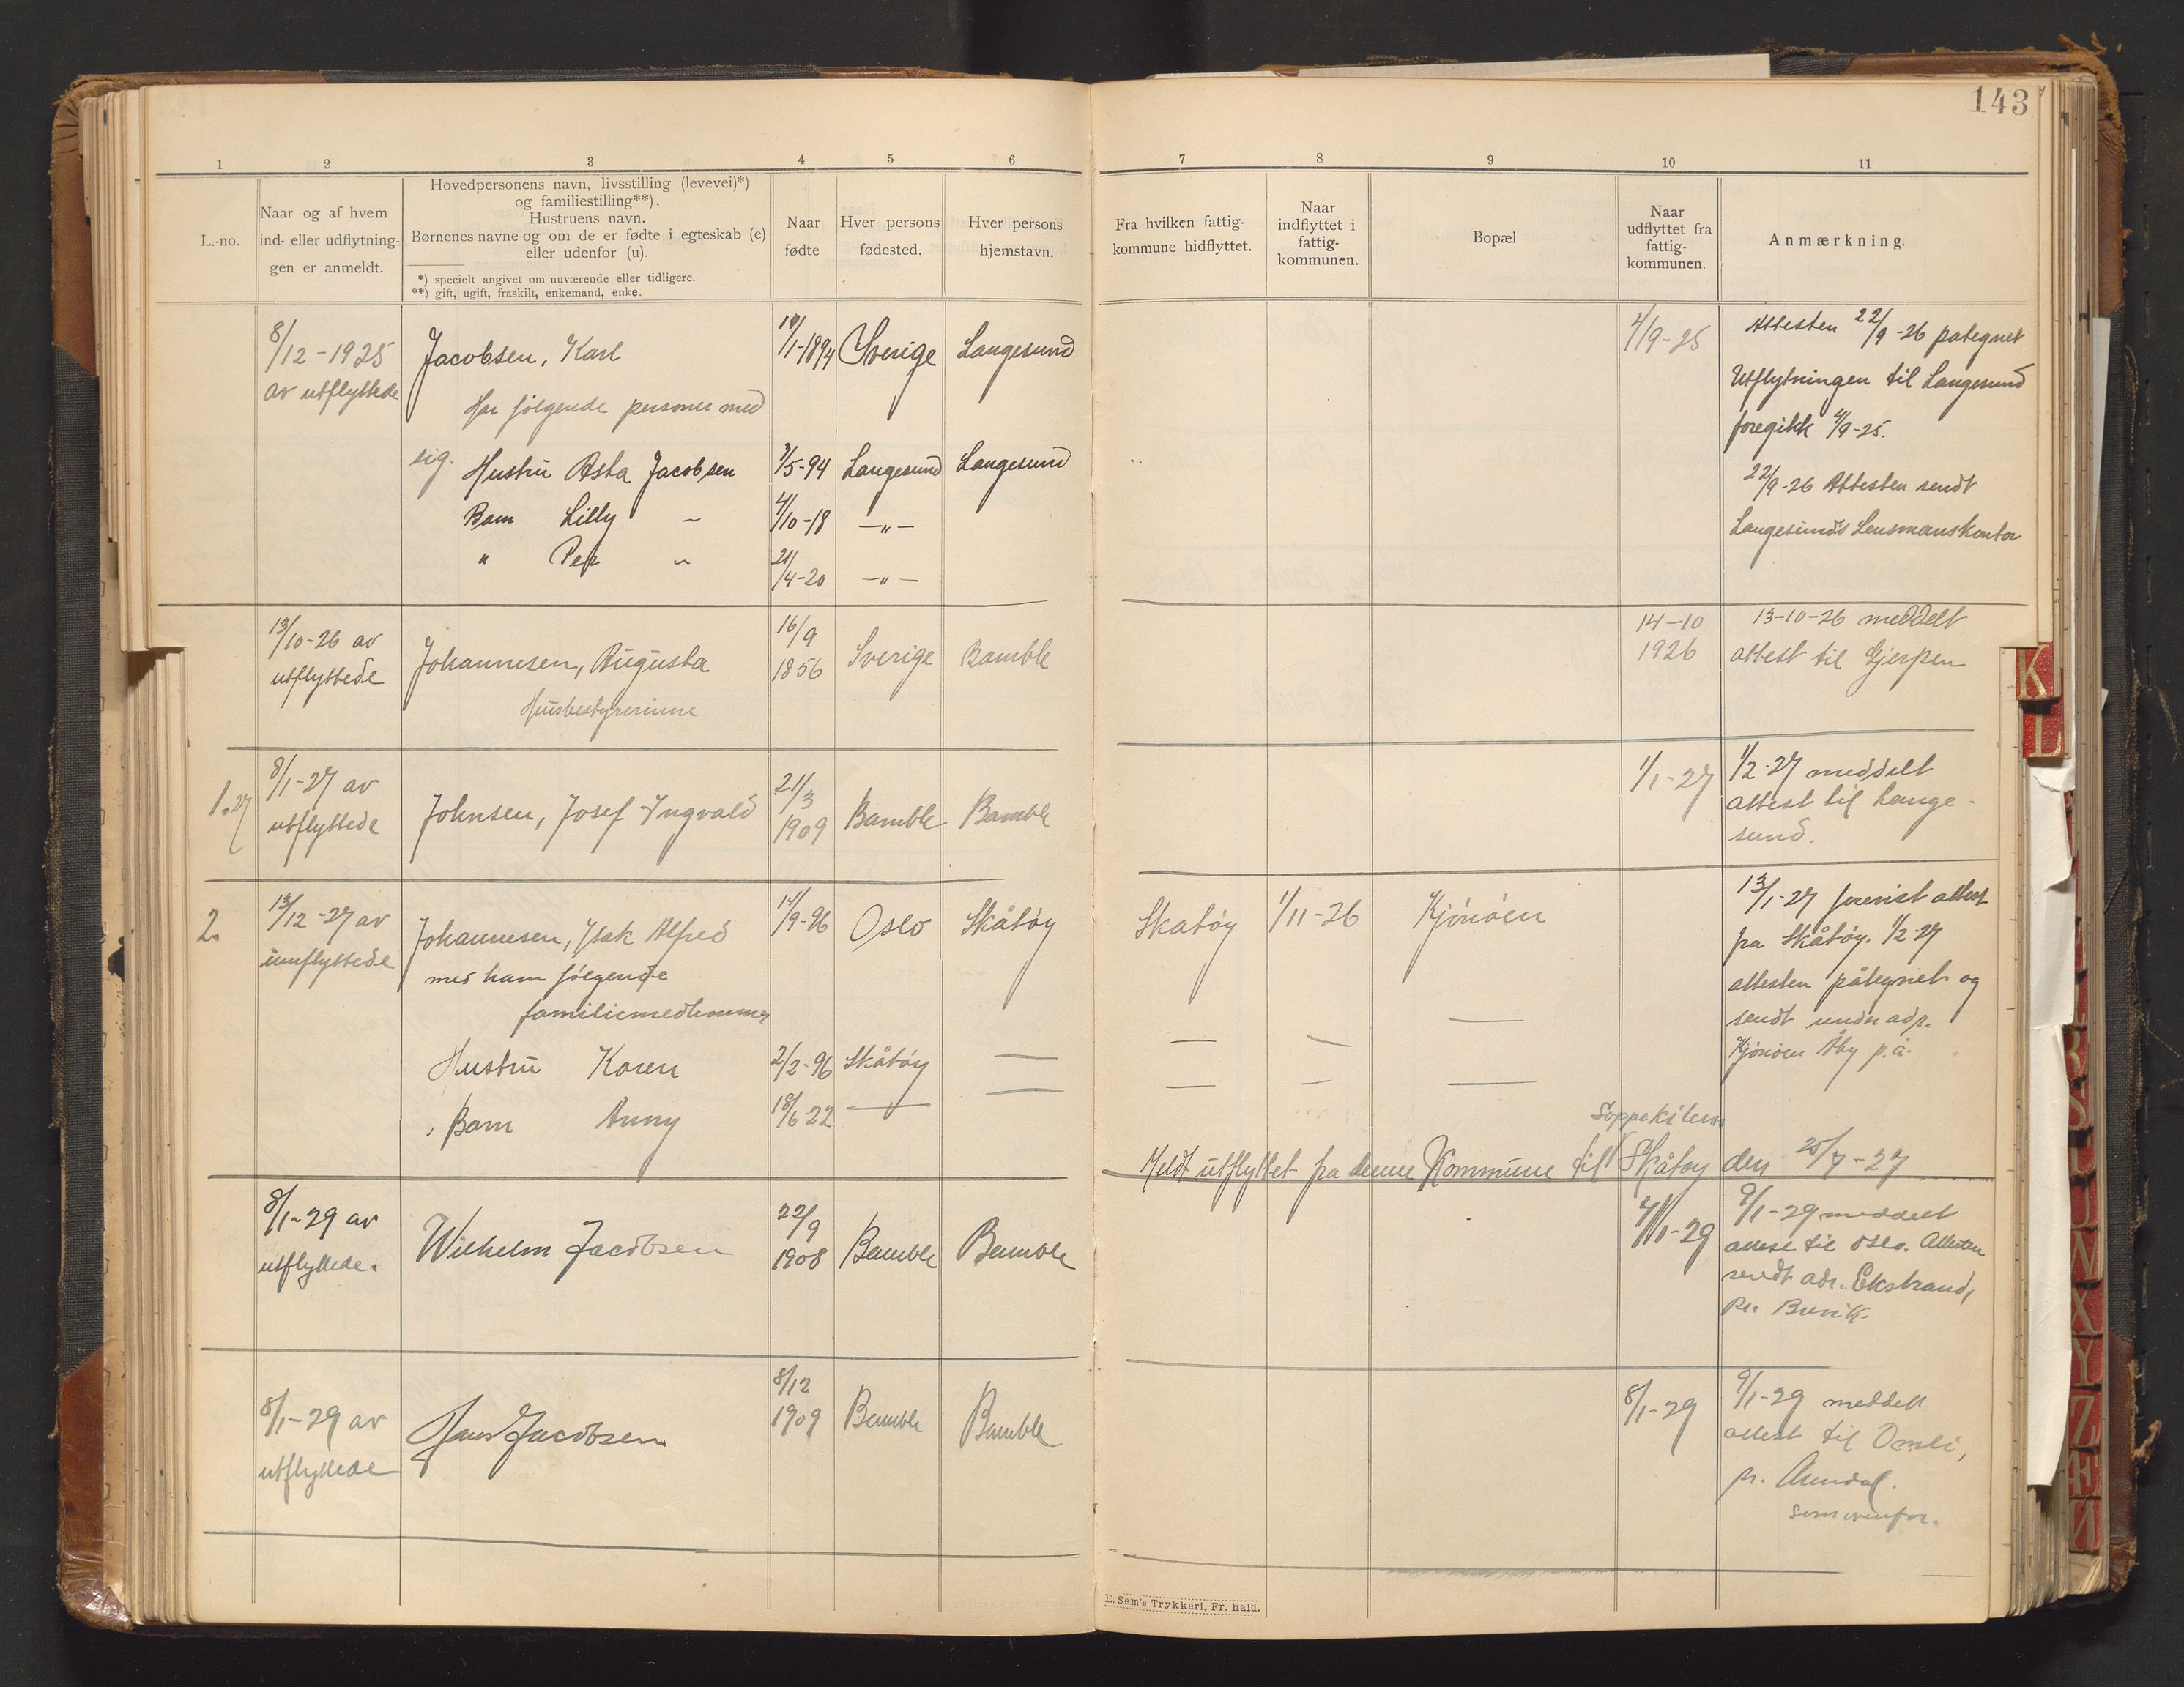 143
1 2 3 4 5 6
7 8 9 10 11
L.-no.
Naar og af hvem
ind- eller udflytnin-
gen er anmeldt.
Hovedpersonens navn, livsstilling (levevei)*)
og familiestilling**).
Hustruens navn.
Børnenes navne og om de er fødte i egteskab (e)
eller udenfor (u).
*) specielt angivet om nuværende eller tidligere.
**) gift, ugift, fraskilt, enkemand, enke.
Naar
fødte
Hver persons
fødested.
Hver persons
hjemstavn.
Fra hvilken fattig-
kommune hidflyttet.
Naar
indflyttet i
fattig-
kommunen.
Bopæl
Naar
udflyttet fra
fattig-
kommunen.
Anmærkning.
8/12-1925
av utflyttede
Jacobsen, Karl
Har følgende personer med
sig.
Hustru Asta Jacobsen
Barn Lilly ~
" Per ~
/1-1894 Sverige Langesund
7/5-94 Langesund Langesund
4/10-18 —"—
21/4-20 —"—
4/9-25
Attesten 22/9-26 pategnet
Utflytningen til Langesund
foregikk 4/9-25.
22/9-26 Attesten sendt
Langesunds Lensmanskontor
13/10-26 av
utflyttede
Johannesen, Augusta
Husbestyrerinne
16/9
1856
Sverige Bamble
14-10
1926
13-10-26 meddelt
attest til Gjerpen
1.27
8/1-27 av
utflyttede
Johnsen, Josef Yngvald
21/3
1909
Bamble Bamble
1/1-27
1/2-27 meddelt
attest til Lange-
sund.
2.
13/12-27 av
innflyttede
Johannesen, Isak Alfred
med ham følgende
familiemedlemmer
Hustru Karen
Barn Anny
/9-96 Oslo Skåtøy
2/2-96 Skåtøy —
18/6 22 — —
Skatøy 1/11-26 Kjønøen
— — —
— — —
13/1-27 forevist attest
fra Skåtøy. 1/2-27
attesten påtegnet og
sendt under adr.
Kjønøen Åby p.å.
Soppekilen
Meldt utflyttet fra denne Kommune til Skåtøy den 25/7-27
8/1-29 av
utflyttede.
Wilhelm Jacobsen
22/9
1908
Bamble Bamble
/1-29
9/1-29 meddelt
attest til Oslo. Attesten
sendt adr. Ekstrand,
pr.
8/1-29 av
utflyttede
Hans Jacobsen
8/12
1909
Bamble Bamble
8/1-29
9/1-29 meddelt
attest til Omli,
pr. Arendal.
som ovenfor.
E. Sem's Trykkeri, Fr. hald.
K
L
R
S
U
N
X
Y
Z
Æ